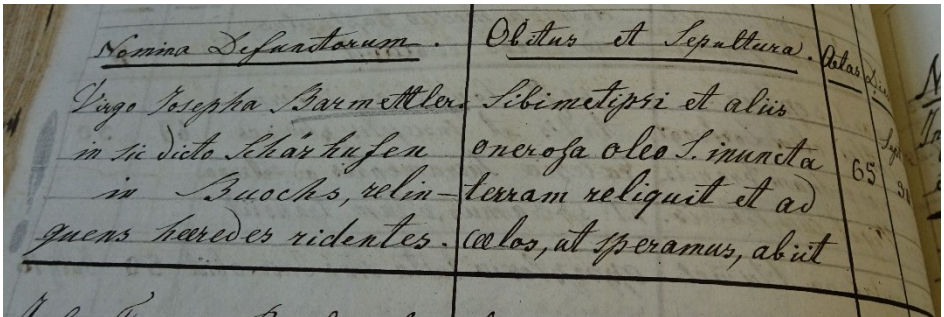 Nomina Defunctorum.
Obitus et Sepultura.
Aetas
Virgo Josepha Barmettler.
in sic dicto Schärhufen
in Buochs, relin-
quens haeredes ridentes.
Sibimetipsi et aliis
onerosa oleo S. inuncta
terram reliquit et ad
coelos, ut speramus, abiit
65
Sept